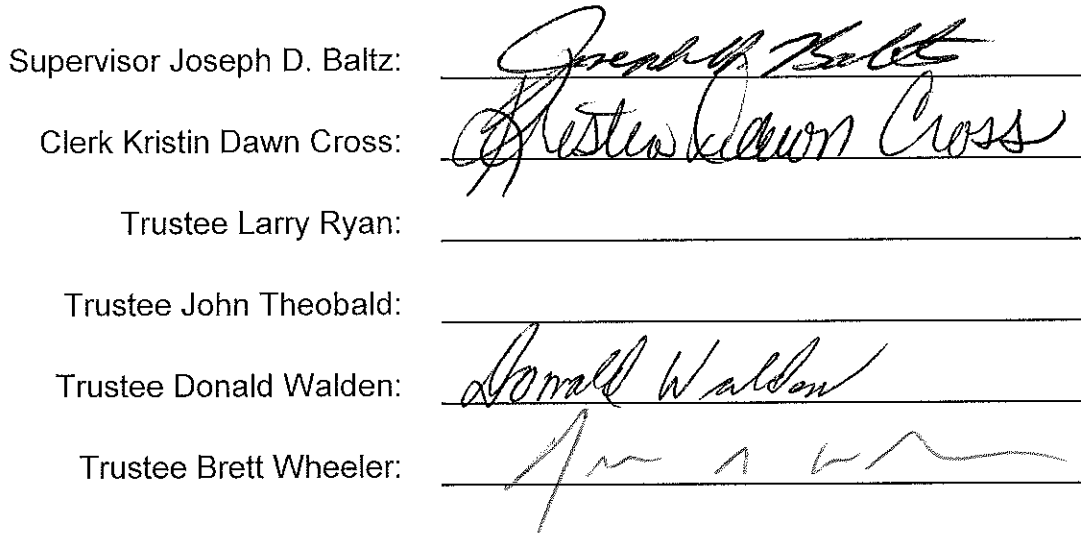 Supervisor Joseph D. Baltz: Joseph D. Baltz
Clerk Kristin Dawn Cross: Kristin Dawn Cross
Trustee Larry Ryan:
Trustee John Theobald:
Trustee Donald Walden: Donald Walden
Trustee Brett Wheeler: